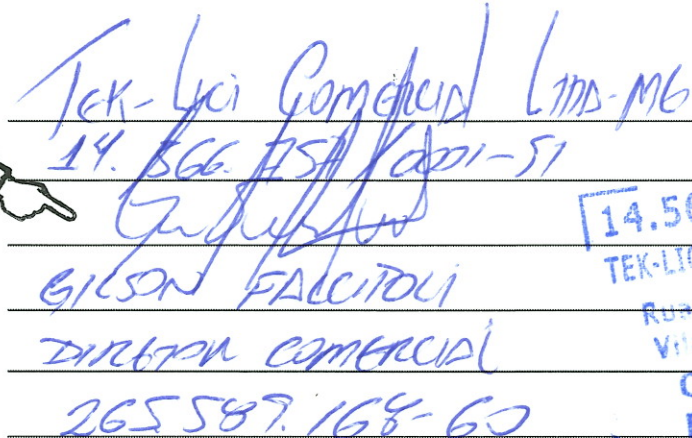 Tek-Lici Comercial Ltda-MG
14.566.757/0001-51
GILSON FALCITOLI
DIRETOR COMERCIAL
265.589.168-60
14.56
TEK-LIC
Rua